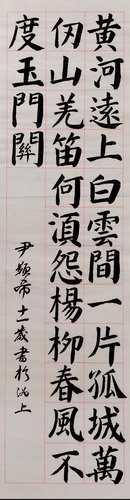 黃河遠上白雲間一片孤城萬
仞山羌笛何湏怨楊柳春風不
度玉門關
尹希十一歲書於上